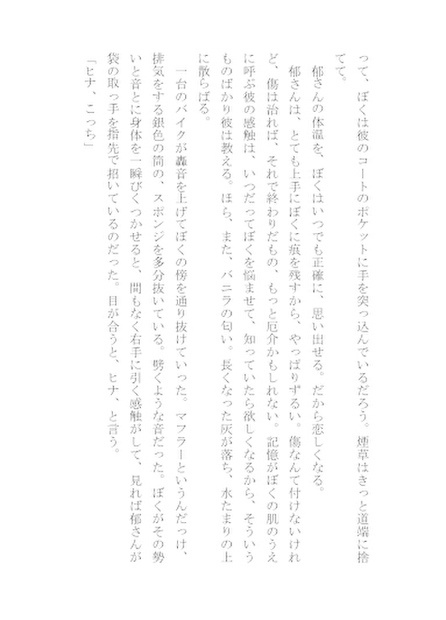 って、ぼくは彼のコートのポケットに手を突っ込んでいるだろう。煙草はきっと道端に捨
てて。
郁さんの体温を、ぼくはいつでも正確に、思い出せる。だから恋しくなる。
郁さんは、とても上手にぼくに痕を残すから、やっぱりずるい。傷なんて付けないけれ
ど、傷は治れば、それで終わりだもの、もっと厄介かもしれない。記憶がぼくの肌のうえ
に呼ぶ彼の感触は、いつだってぼくを悩ませて、知っていたら欲しくなるから、そういう
ものばかり彼は教える。ほら、また、バニラの匂い。長くなった灰が落ち、水たまりの上
に散らばる。
一台のバイクが轟音を上げてぼくの傍を通り抜けていった。マフラーというんだっけ、
排気をする銀色の筒の、スポンジを多分抜いている。劈くような音だった。ぼくがその勢
いと音とに身体を一瞬びくつかせると、間もなく右手に引く感触がして、見れば郁さんが
袋の取っ手を指先で招いているのだった。目が合うと、ヒナ、と言う。
「ヒナ、こっち」